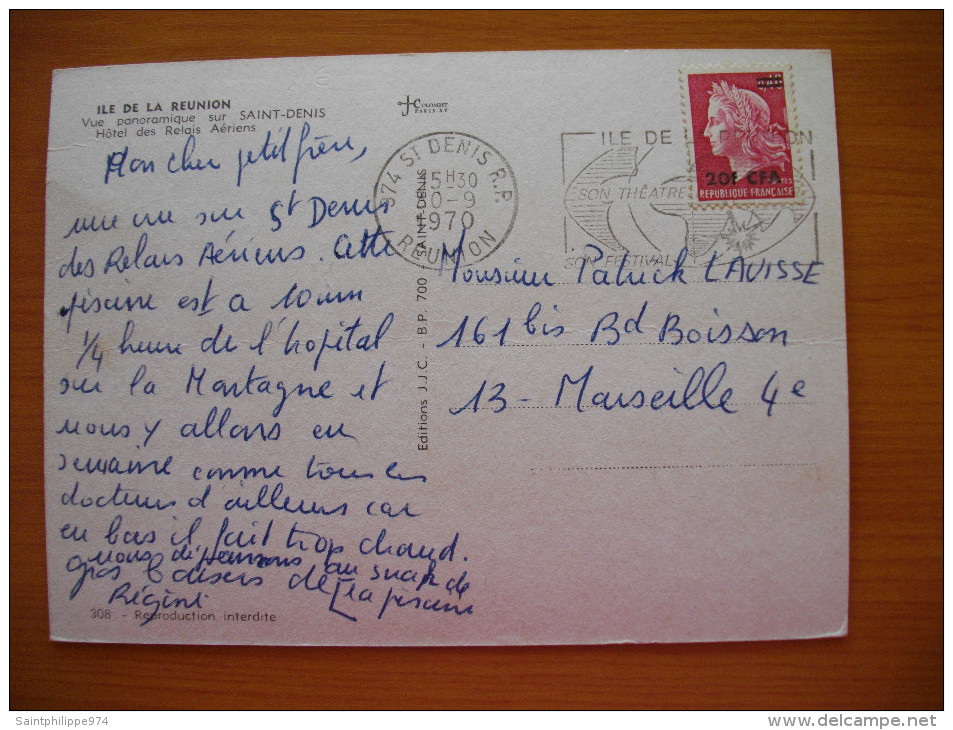 ILE DE LA REUNION
Vue panoramique sur SAINT-DENIS
Hôtel des Relais Aériens
Mon cher petit frère,
une vue sur St Denis
des Relais Aériens. Cette
piscine est à 10 mn
1/4 heure de l'hopital
sur la Montagne et
nous y allons en
semaine comme tous les
docteurs d'ailleurs car
en bas il fait trop chaud.
nous déjeunons au snack de
la piscine
gros baisers de
Régine
308 - Reproduction interdite
COLOMBET
PARIS-XV
Editions J.J.C. - B.P. 700 - SAINT-DENIS
974 ST DENIS R.P.
15H30
0-9
1970
REUNION
ILE DE LA REUNION
SON THÉATRE
SON FESTIVAL
0,40
20F CFA
REPUBLIQUE FRANÇAISE
Monsieur Patrick LAVISSE
161 bis Bd Boisson
13 - Marseille 4e
Saintphilippe974
www.delcampe.net